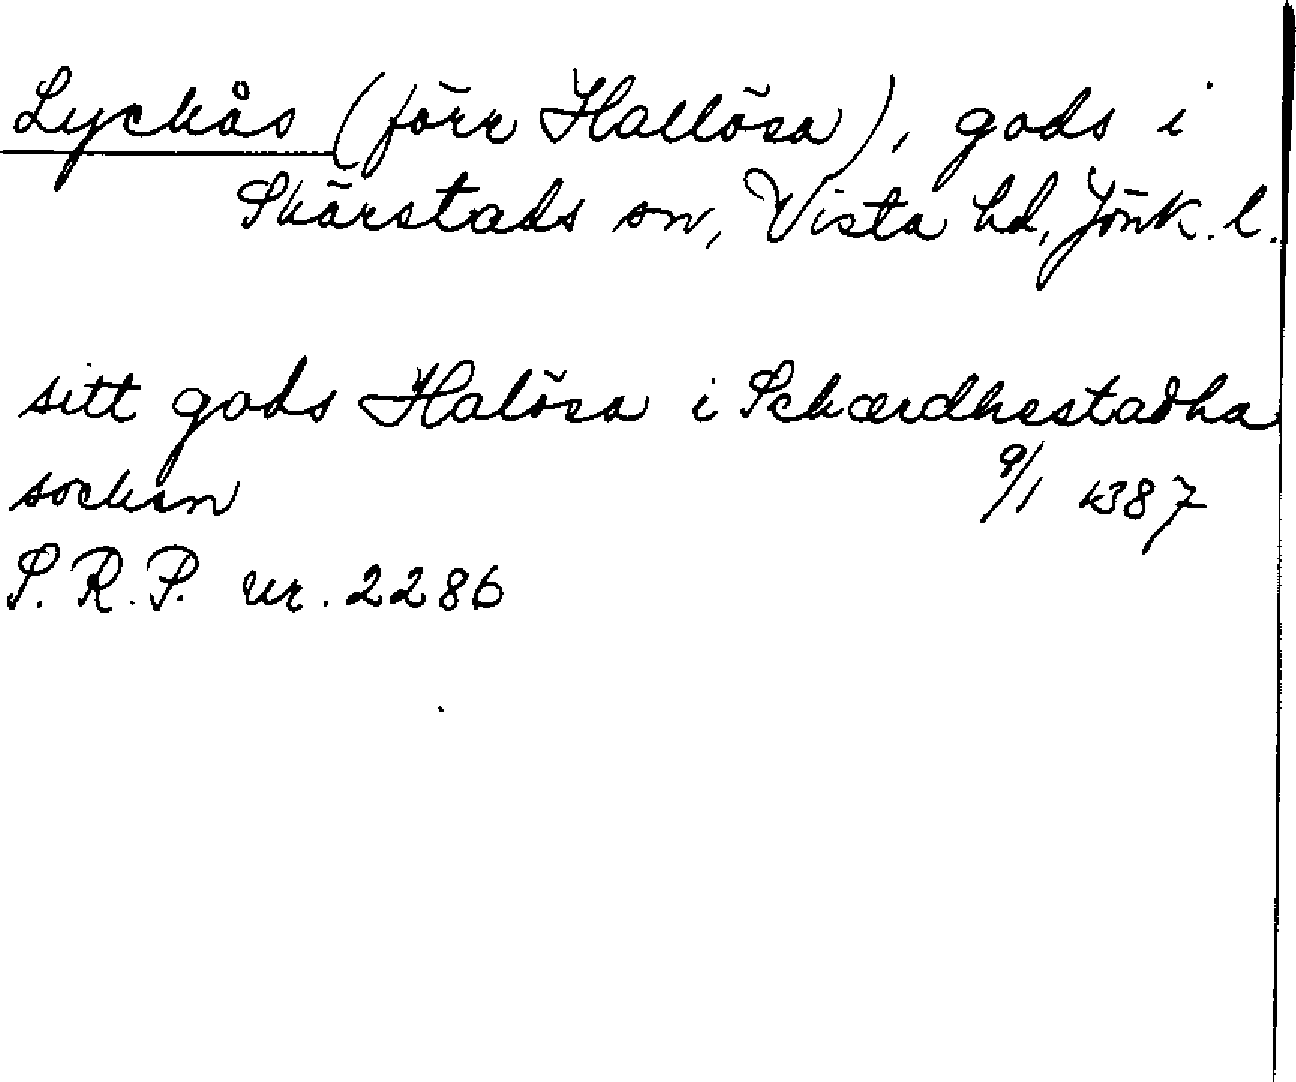 Lyckås (förr Hallösa), gods i
Skärstads sn, Vista hd, Jönk. l.
sitt gods Halösa i Sckærdhestadha
sockin 9/1 1387
S. R. P. nr. 2286